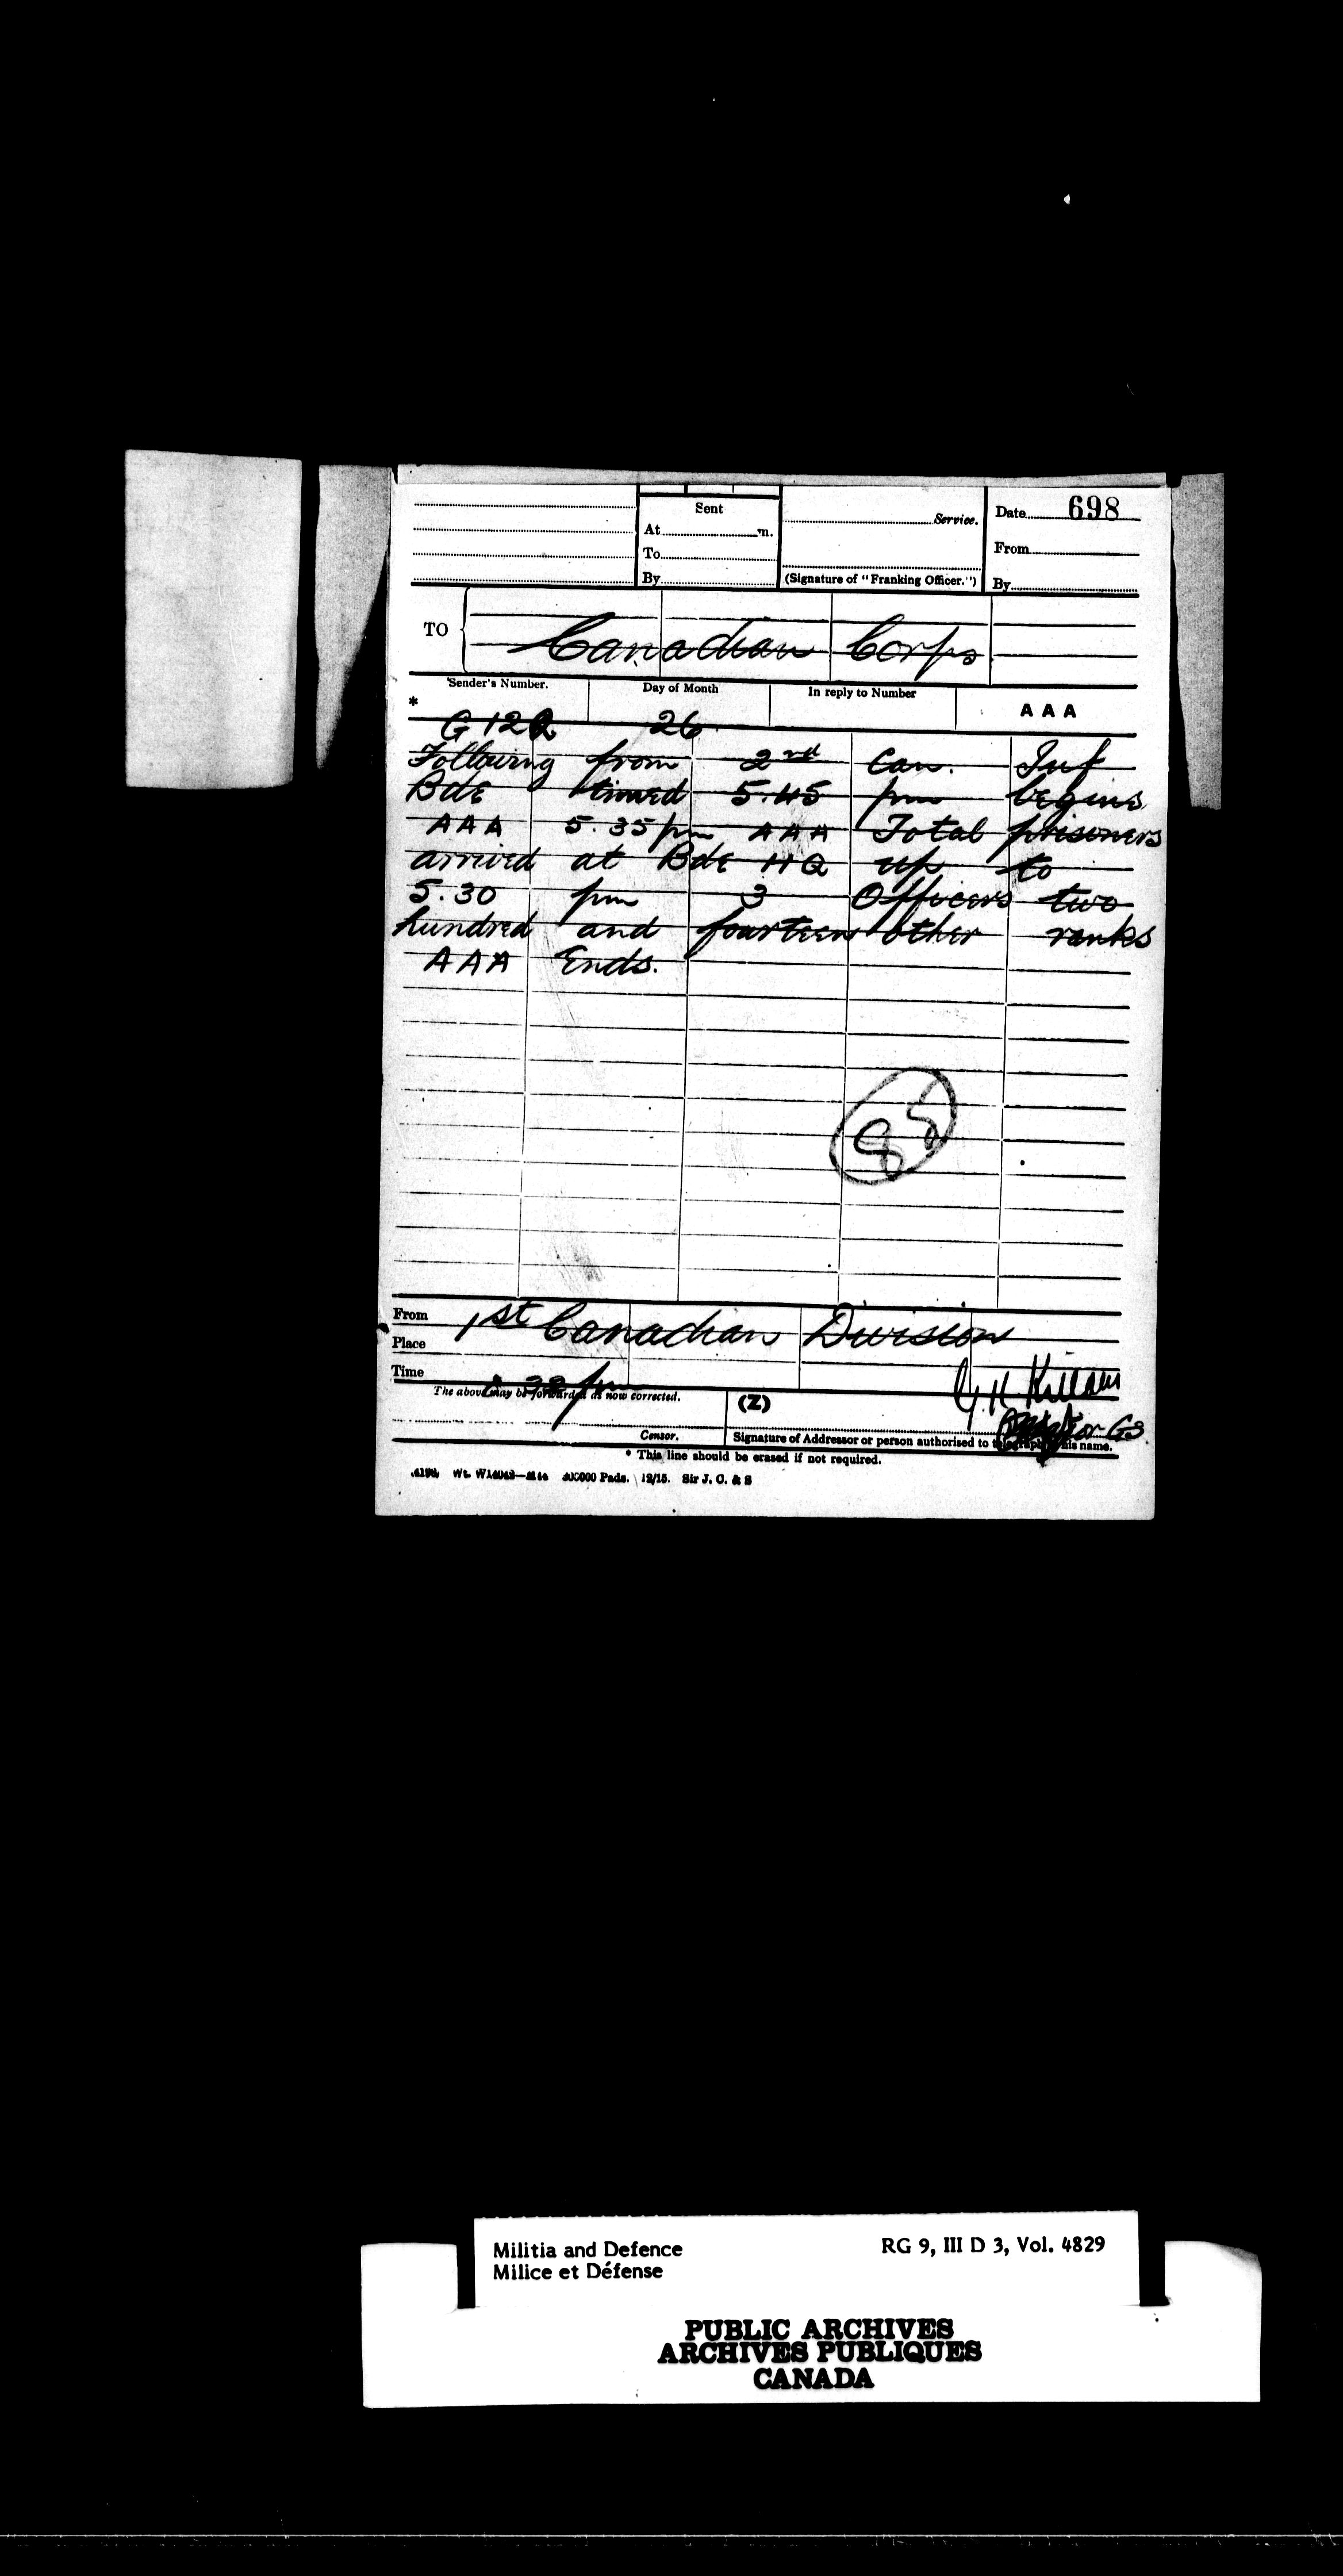 Sent
At m.
To
By
Service.
(Signature of "Franking Officer.")
Date 698
From
By
TO
Canadian Corps
Sender's Number.
Day of Month
In reply to Number
AAA
*
26
Following from 2nd Can. Inf
Bde timed 5.45 pm begins
AAA 5.35 pm AAA Total prisoners
arrived at Bde HQ up to
5.30 pm 3 Officers two
hundred and fourteen other ranks
AAA Ends.
From
1st Canadian Division
Place
Time
The above may be forwarded as now corrected.
(Z)
Censor.
Signature of Addressor or person authorised to telegraph in his name.
* This line should be erased if not required.
Pads. 12/15. Sir J. C. & S
Militia and Defence
Milice et Défense
RG 9, III D 3, Vol. 4829
PUBLIC ARCHIVES
ARCHIVES PUBLIQUES
CANADA